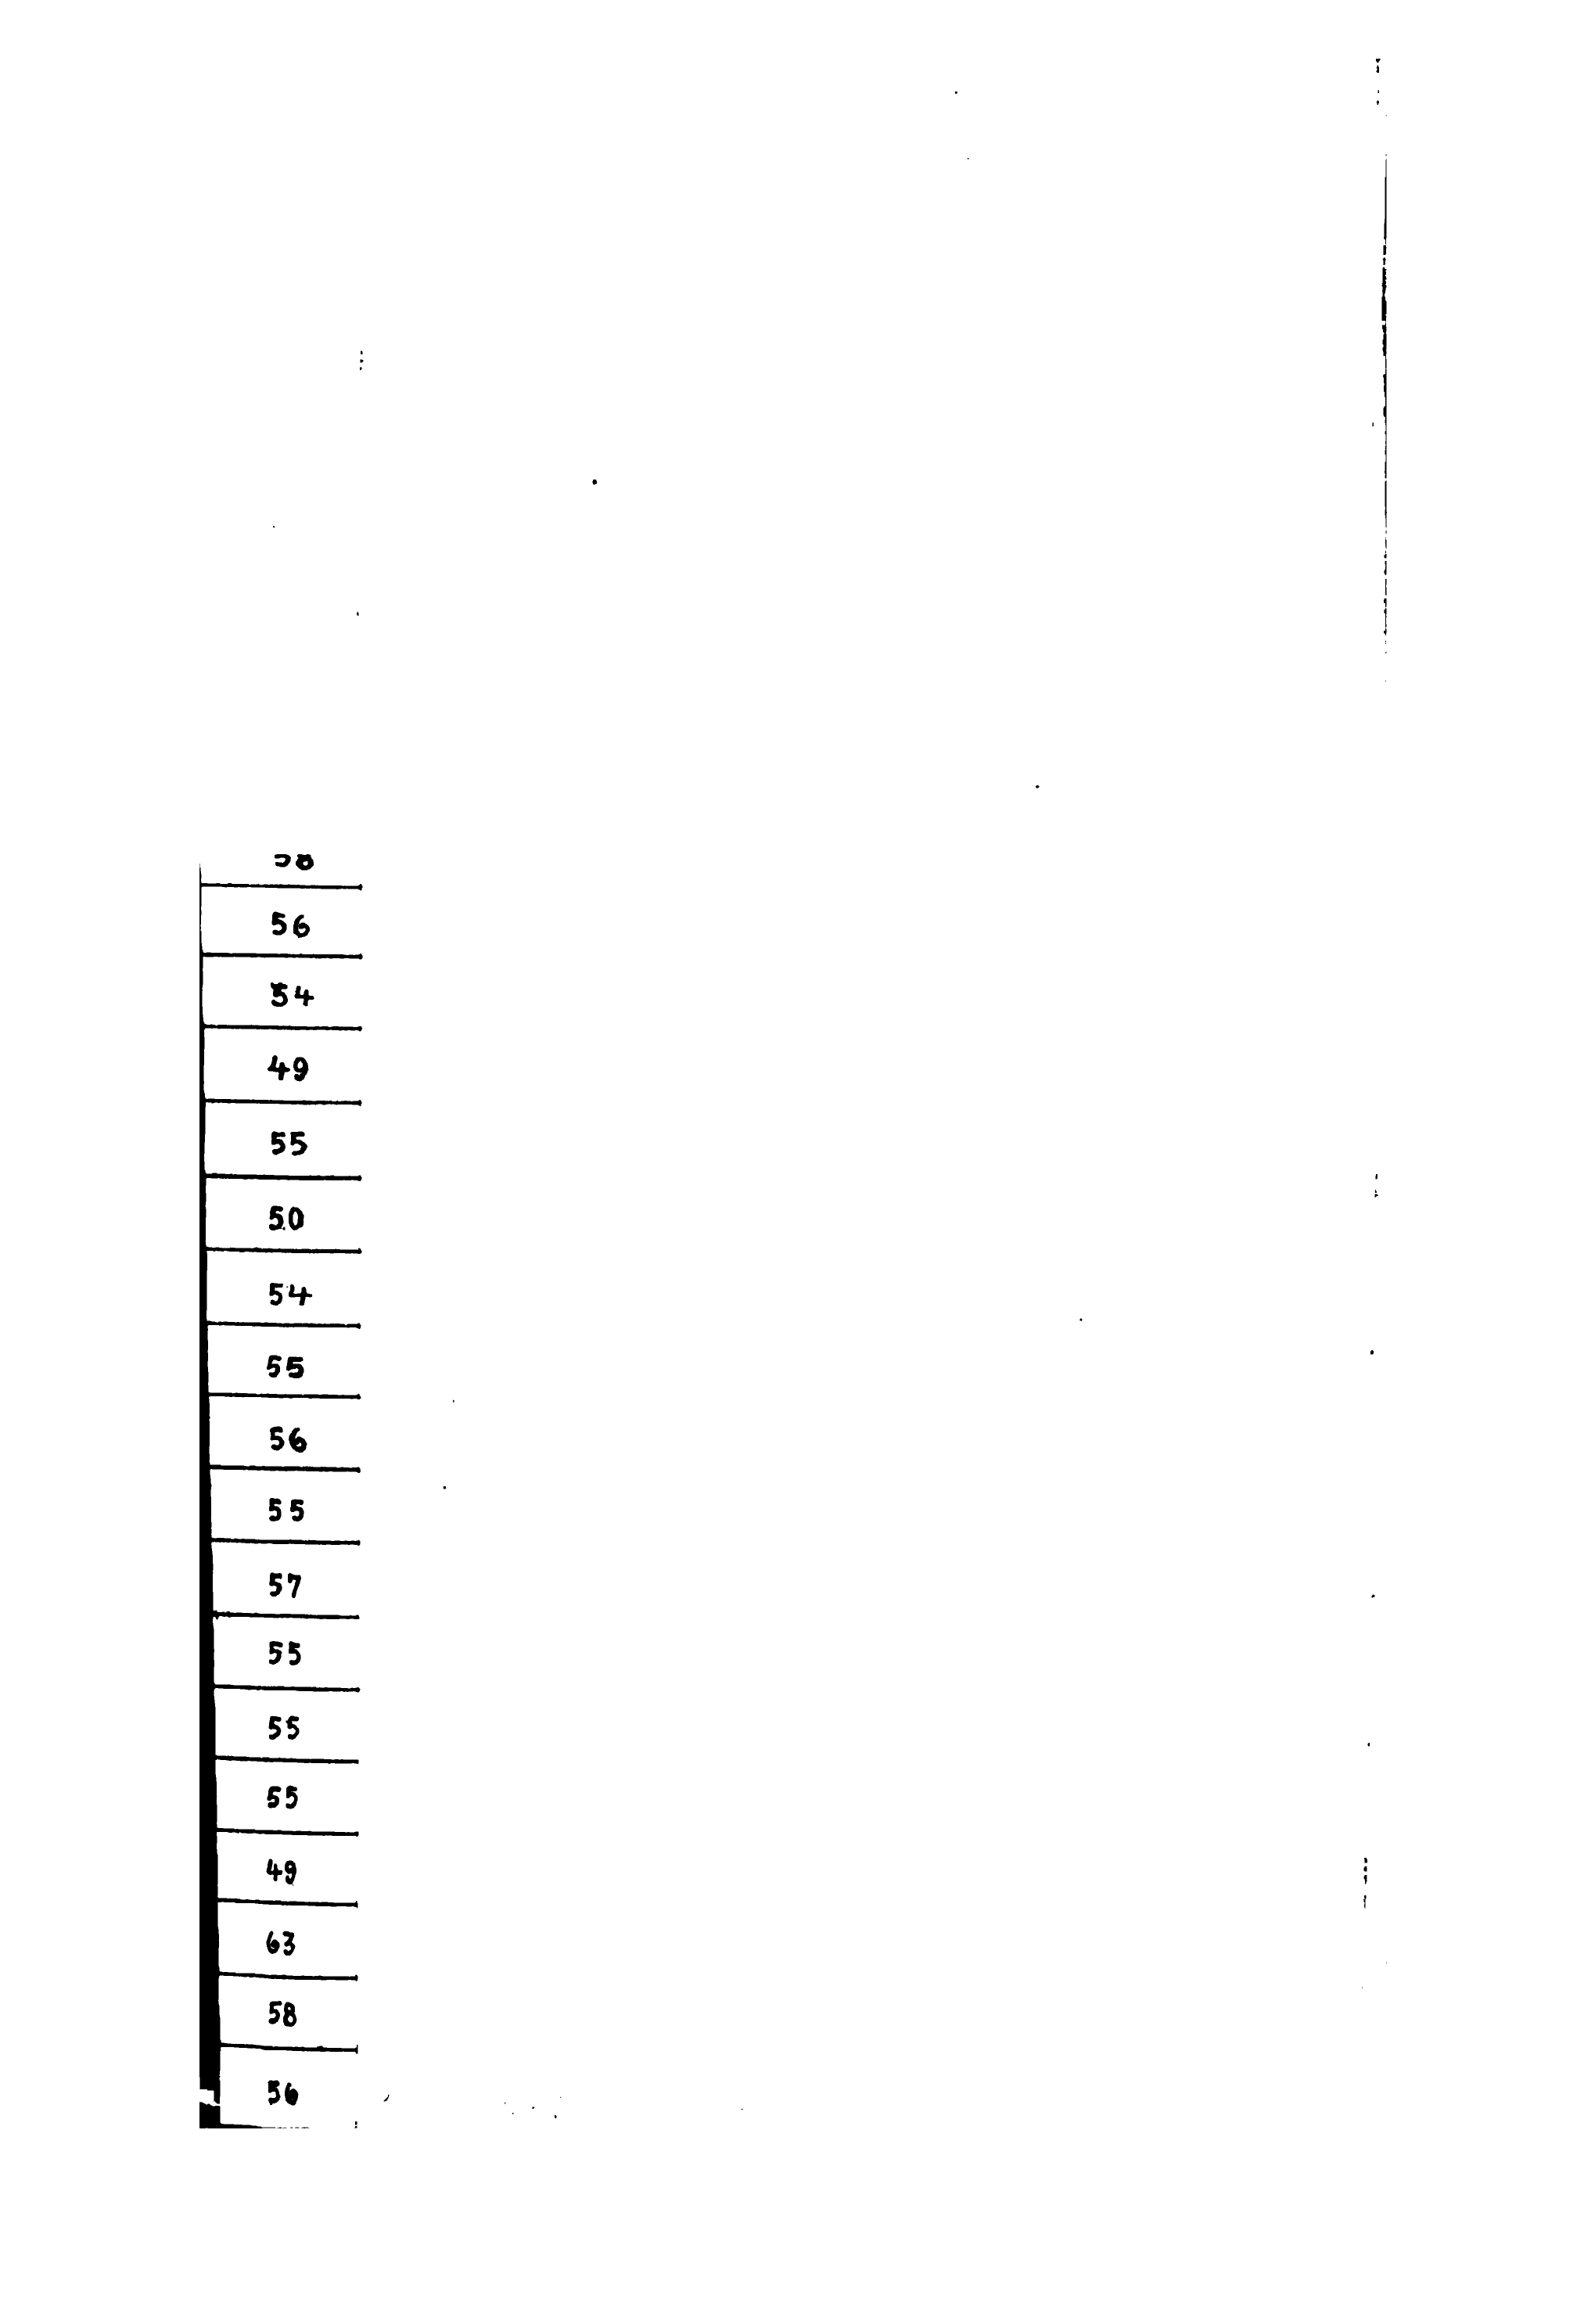 56
54
49
55
50
54
55
56
55
57
55
55
55
49
63
58
56